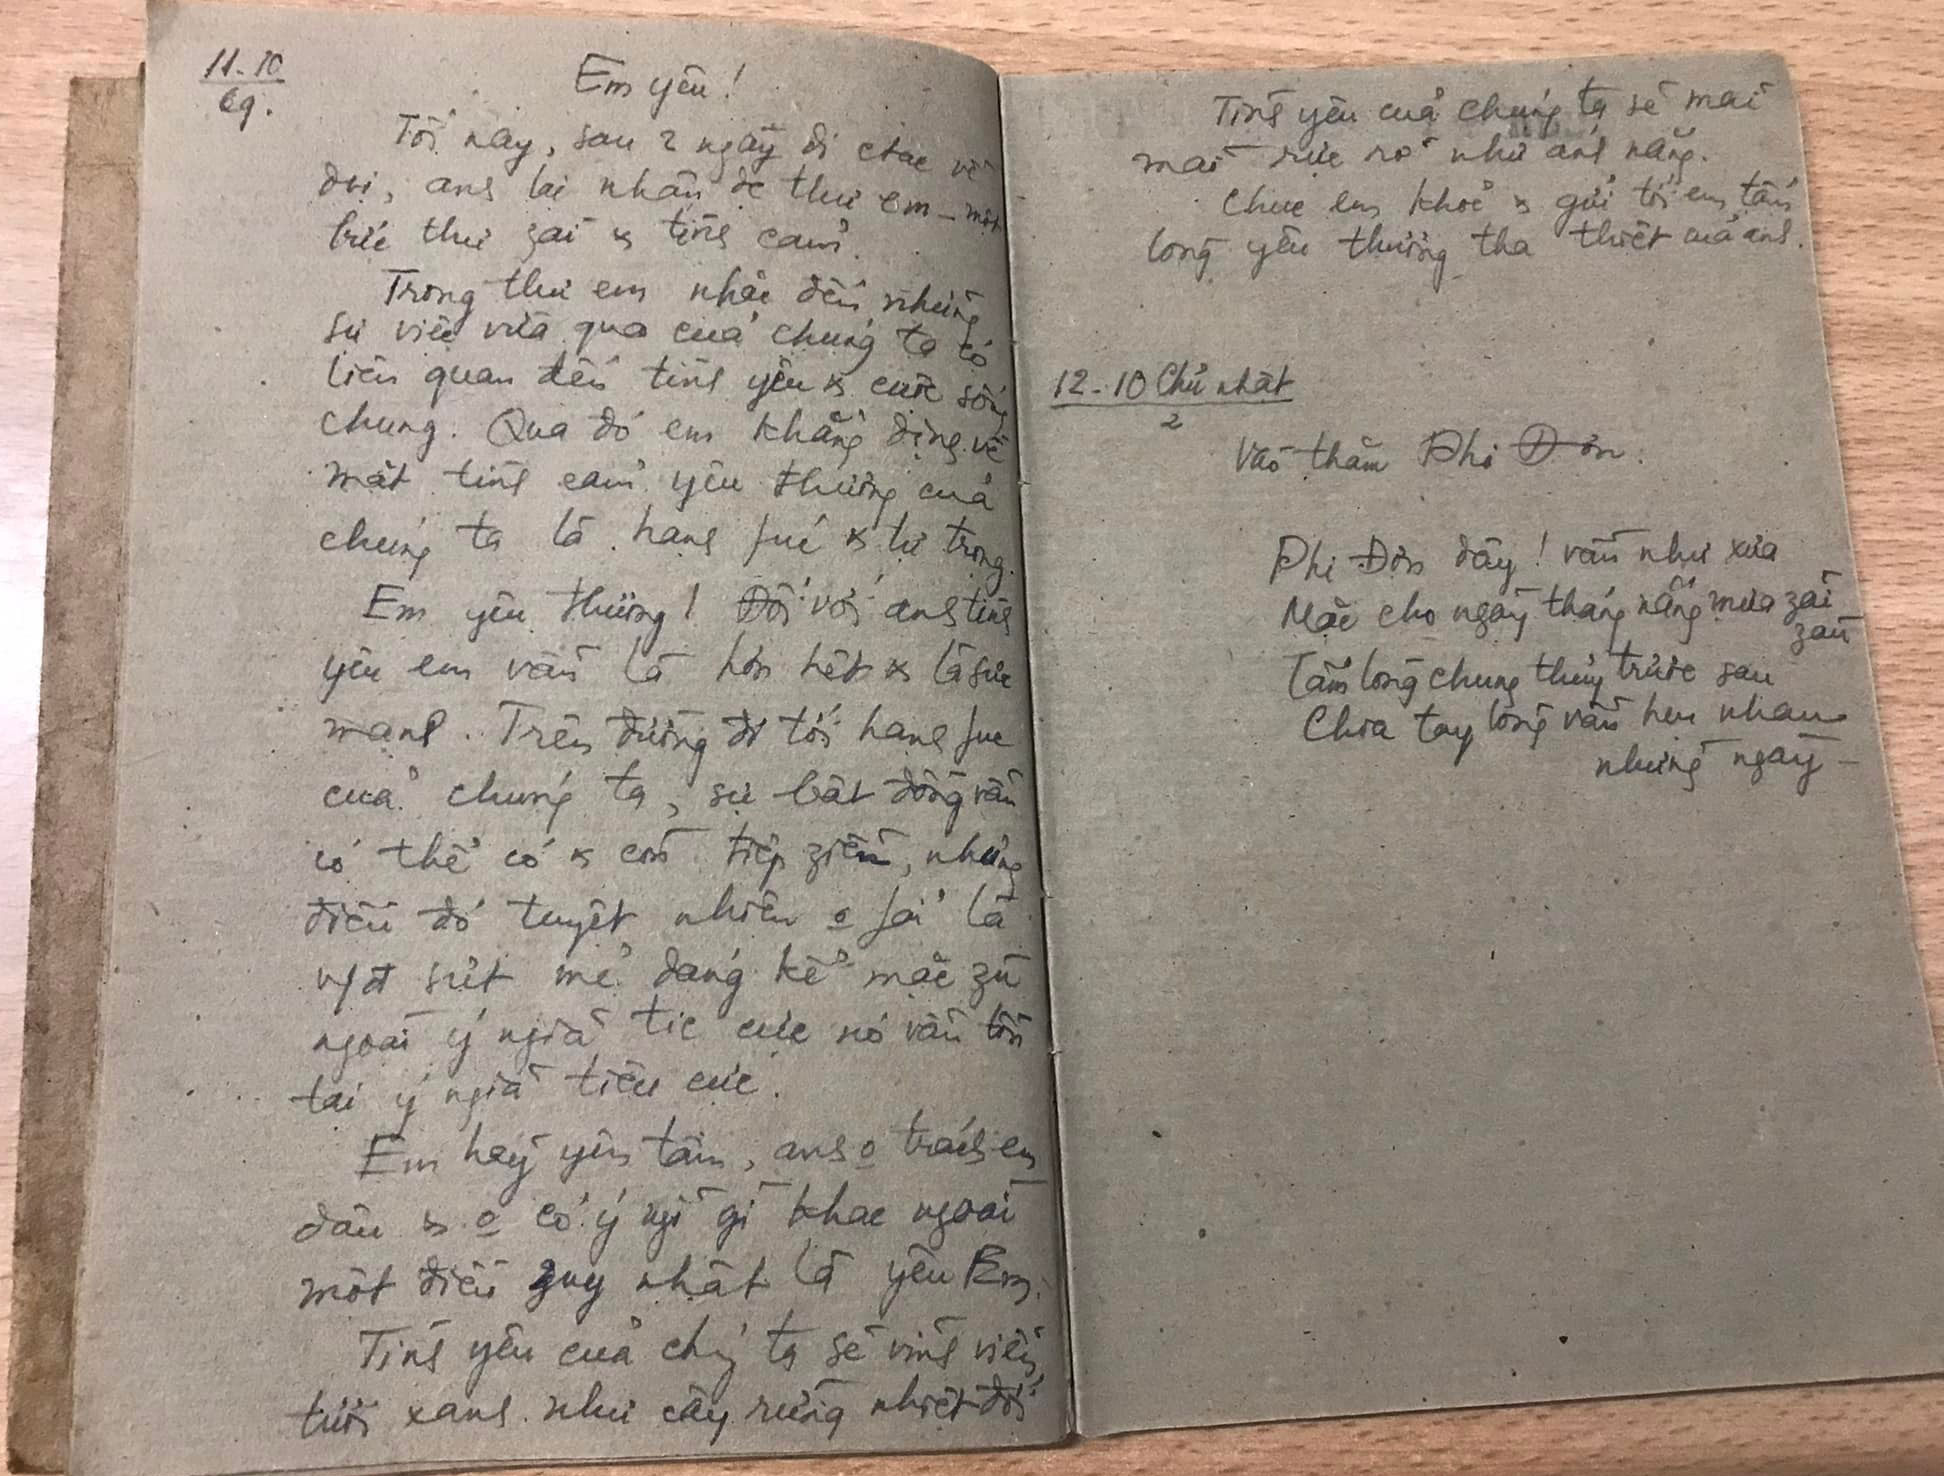 11-10
69.
Em yêu!
Tối nay, sau 2 ngày đi ctác về
đvị, anh lại nhận đc thư em - một
bức thư zài & tình cảm.
Trong thư em nhắc đến những
sự việc vừa qua của chúng ta có
liên quan đến tình yêu & cuộc sống
chung. Qua đó em khẳng định về
mặt tình cảm yêu thương của
chúng ta là hanh fúc & tự trọng.
Em yêu thương! Đối với anh tình
yêu em vẫn là hơn hết & là sức
mạnh. Trên đường đi tới hạnh fúc
của chúng ta, sự bất đồng vẫn
có thể có & còn tiếp ziễn, nhưng
điều đó tuyệt nhiên o fải là
sứt mẻ đáng kể mặc zù
ngoài ý ngiã tíc cực nó vẫn tồn
tại ý ngiã tiêu cực.
Em hãy yên tâm, anh o trách em
đâu & o có ý ngĩ gì khác ngoài
một điều zuy nhất là yêu Em.
Tình yêu của chg ta sẽ vĩnh viễn
tươi xanh như cây rừng nhiệt đới
Tình yêu của chúng ta sẽ mãi
mãi rực rỡ như ánh nắng.
Chúc em khoẻ & gửi tới em tấm
lòng yêu thương tha thiết của anh.
12-10 Chủ nhật
2
Vào thăm Phi Đơn.
Phi Đơn đây! vẫn như xưa
Mặc cho ngày tháng nắng mưa zãi
zàu
Tấm lòng chung thủy trước sau
Chia tay lòng vẫn hẹn nhau
những ngày -